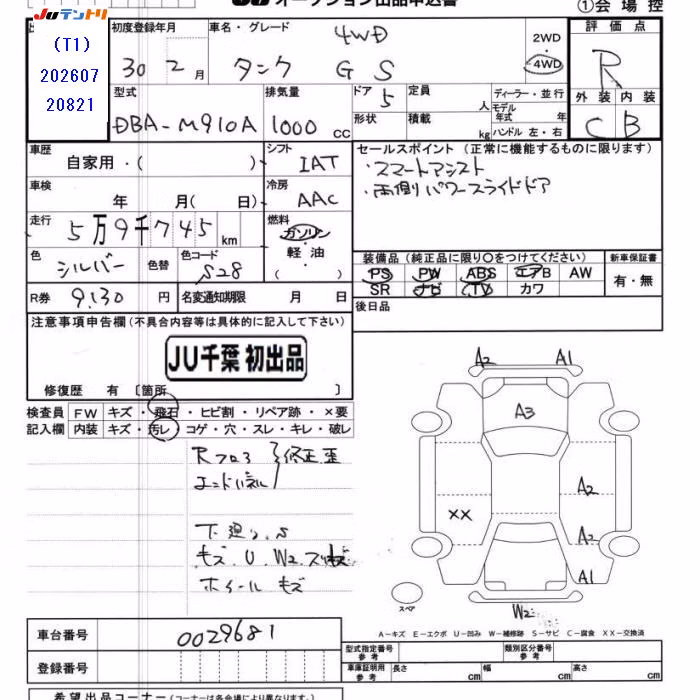 JUテントリ
(T1)
202607
20821
JU オークション出品申込書
①会場控
初度登録年月 30 2月
車名・グレード 4WD
タンク G S
2WD
・
4WD
評価点
R
外装 内装
C B
型式 DBA-M910A
排気量 1000 cc
ドア 5
形状
定員 人
積載 kg
ディーラー・並行
モデル年式 年
ハンドル 左・右
車歴 自家用・( )
シフト IAT
セールスポイント (正常に機能するものに限ります)
・スマートアシスト
・両側パワースライドドア
車検 年 月( 日)
冷房 AAC
走行 5万9千745 km
燃料
ガソリン
軽・油
( )
色 シルバー 色替
色コード S28
装備品 (純正品に限り○をつけてください)
新車保証書
PS PW ABS エアB AW
SR ナビ TV カワ
有・無
R券 9,130 円
名変通知期限 月 日
後日品
注意事項申告欄 (不具合内容等は具体的に記入して下さい)
JU千葉 初出品
修復歴 有 〔箇所 〕
検査員 FW キズ・飛石・ヒビ割・リペア跡・×要
記入欄 内装 キズ・汚レ・コゲ・穴・スレ・キレ・破レ
Rフロア
エンドパネル
修正歪
下廻り、S
キズ.U.W2.
ホイールキズ
A2 A1
A3
A2
XX
A2
A1
W2
スペア
A-キズ E-エクボ U-凹み W-補修跡 S-サビ C-腐食 XX-交換済
車台番号 0029681
登録番号
型式指定番号
参考
類別区分番号
参考
車庫証明用
参考
長さ cm 幅 cm 高さ cm
希望出品コーナー (コーナーは各会場により異なります。)